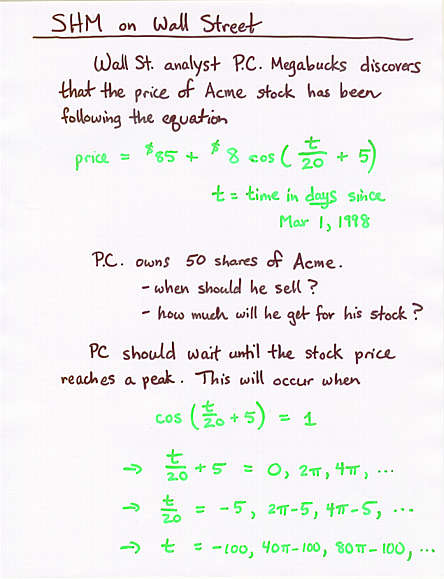 SHM on Wall Street
Wall St. analyst P.C. Megabucks discovers
that the price of Acme stock has been
following the equation
price = $85 + $8 cos( t/20 + 5)
t = time in days since
Mar 1, 1998
P.C. owns 50 shares of Acme.
- when should he sell?
- how much will he get for his stock?
PC should wait until the stock price
reaches a peak. This will occur when
cos ( t/20 + 5) = 1
→ t/20 + 5 = 0, 2π, 4π, ...
→ t/20 = -5, 2π-5, 4π-5, ...
→ t = -100, 40π-100, 80π-100, ...